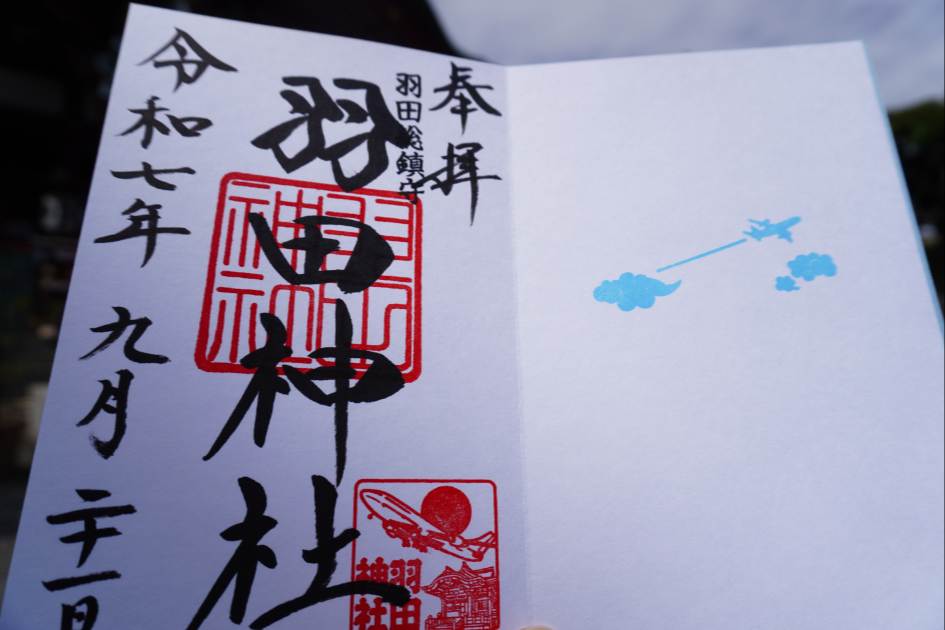 奉拝
羽田総鎮守
羽田神社
羽田神社
羽田
神社
令和七年 九月 二十一日